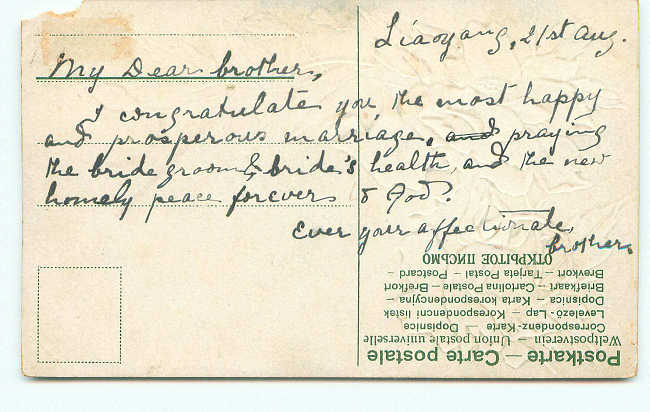 Liaoyang, 21st Aug.
My Dear brother,
I congratulate you, the most happy
and prosperous marriage, and praying
the bride groom & bride's health, and the new
homely peace forever, & God.
Ever your affectionate,
brother,
Postkarte — Carte postale
Weltpostverein — Union postale universelle
Correspondenz-Karte Dopisnice
Levelező-Lap — Korespondencní listek
Dopisnica — Karta korespondencyjna
Briefkaart — Cartolina Postale — Brefkort
Brevkort — Tarjeta Postal — Postcard
ОТКРЫТОЕ ПИСЬМО